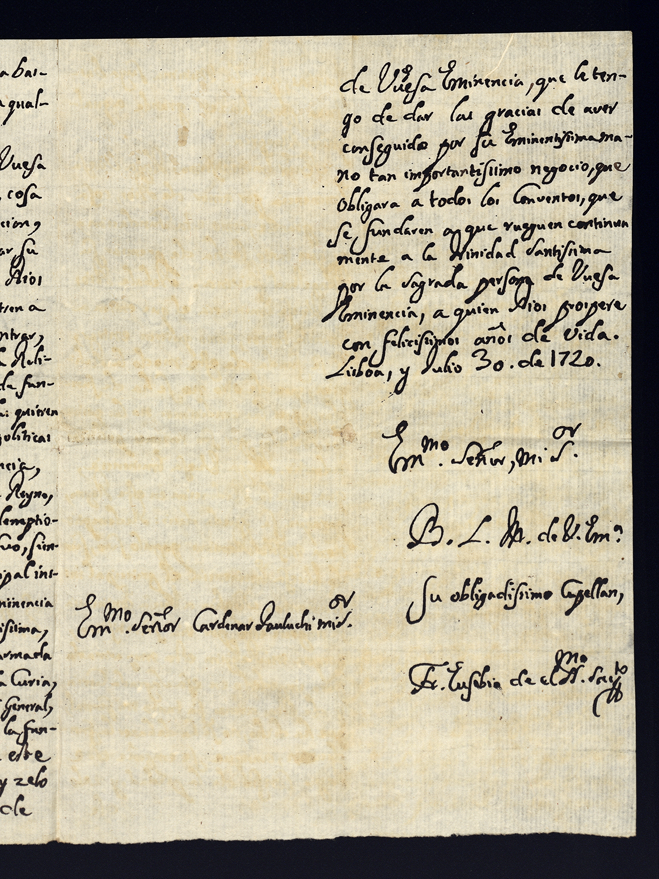 a bai-
a qual-
Vuesa
cosa
cion,
ar su
Dios
tren a
ntrar,
Reli-
de fun-
quieren
politicas
ncia,
Reyno,
demptio-
vo, sien-
ipal int-
minencia
issima,
armada
a Curia,
General,
la fun-
este
y zelo
de
de Vuesa Eminencia, que le ten-
go de dar las gracias de aver
conseguido por su Eminentissima ma-
no tan importantissimo negocio, que
obligara a todos los Conventos, que
se fundaren a que rueguen continua
mente a la Trinidad Santissima
por la Sagrada persona de Vuesa
Eminencia, a quien Dios prospere
con felicissimos años de vida.
Lisboa, y Julio 30. de 1720.
Emmo. Señor, mi Sor.
B. L. M. de V.Ema.
Su obligadissimo Capellan,
Fr. Eusebio de el SSmo. Sacto
Emmo. Señor Cardenar Pauluchi mi Sor.